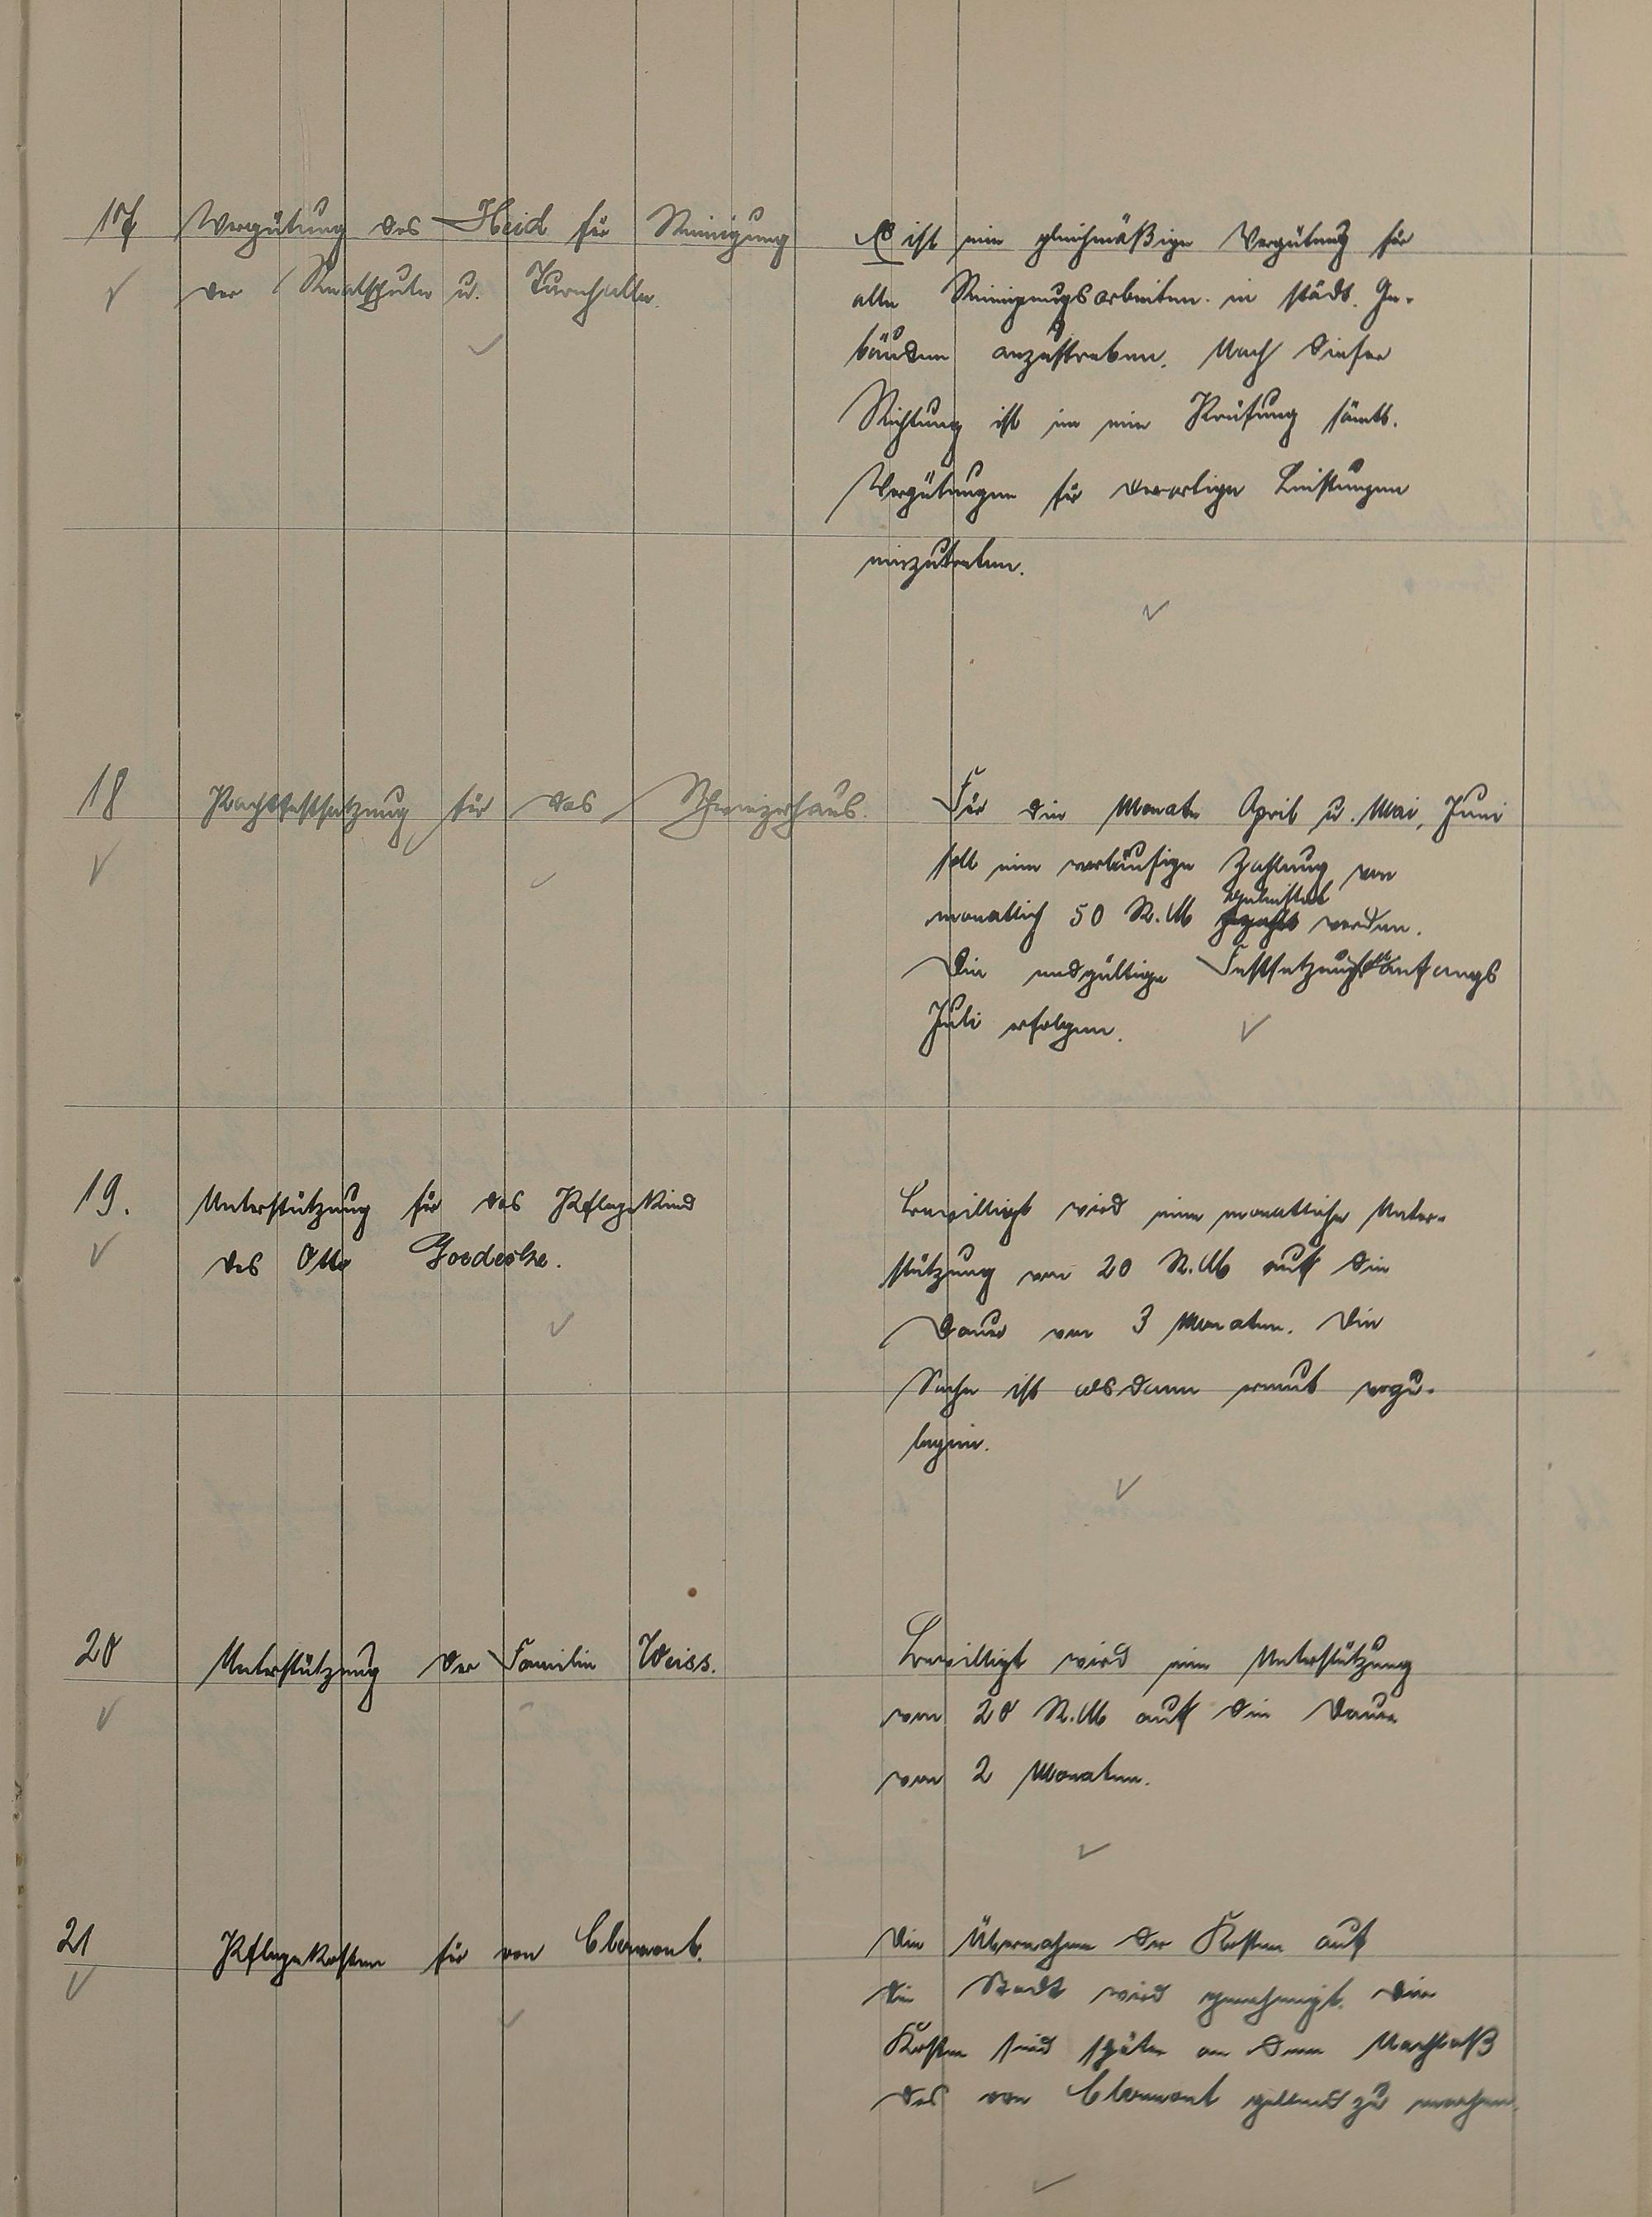 17 Vergütung des Heid für Reinigung
der Realschule u. Turnhalle.
Es ist eine gleichmäßige Vergütung für
alle Reinigungsarbeiten in städt. Ge-
bäuden anzustreben. Nach dieser
Richtung ist in eine Prüfung sämtl.
Vergütungen für derartige Leistungen
einzutreten.
18 Pachtfestsetzung für das Schweizerhaus.
Für die Monate April u. Mai, Juni
soll eine vorläufige Zahlung von
geleistet
monatlich 50 R.M gezahlt werden.
Die endgültige Festsetzung soll anfangs
Juli erfolgen.
19. Unterstützung für das Pflegekind
des Otto
Bewilligt wird eine monatliche Unter-
stützung von 20 R.M auf die
Dauer von 3 Monaten. Die
Sache ist alsdann erneut vorzu-
legen.
20 Unterstützung der Familie Weiss.
Bewilligt wird eine Unterstützung
von 20 R.M auf die Dauer
von 2 Monaten.
21 Pflegekosten für von Clermont.
Die Übernahme der Kosten auf
die Stadt wird genehmigt. Die
Kosten sind später an dem Nachlaß
des von Clermont geltend zu machen.